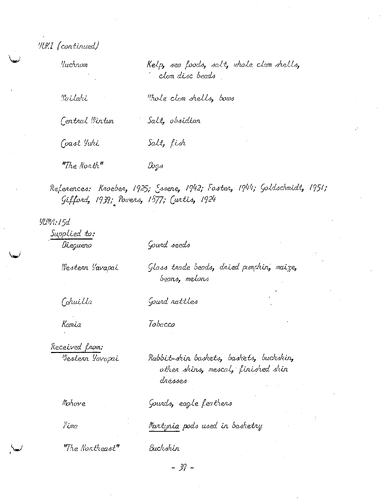 YUKI (continued)
Huchnom Kelp, sea foods, salt, whole clam shells,
clam disc beads
Wailaki Whole clam shells, bows
Central Wintun Salt, obsidian
Coast Yuki Salt, fish
"The North" Dogs
References: Kroeber, 1925; Essene, 1942; Foster, 1944; Goldschmidt, 1951;
Gifford, 1939; Powers, 1877; Curtis, 1924
YUMA:15d
Supplied to:
Diegueno Gourd seeds
Western Yavapai Glass trade beads, dried pumpkin, maize,
beans, melons
Cahuilla Gourd rattles
Kamia Tobacco
Received from:
Western Yavapai Rabbit-skin baskets, baskets, buckskin,
other skins, mescal, finished skin
dresses
Mohave Gourds, eagle feathers
Pima Martynia pods used in basketry
"The Northeast" Buckskin
- 37 -